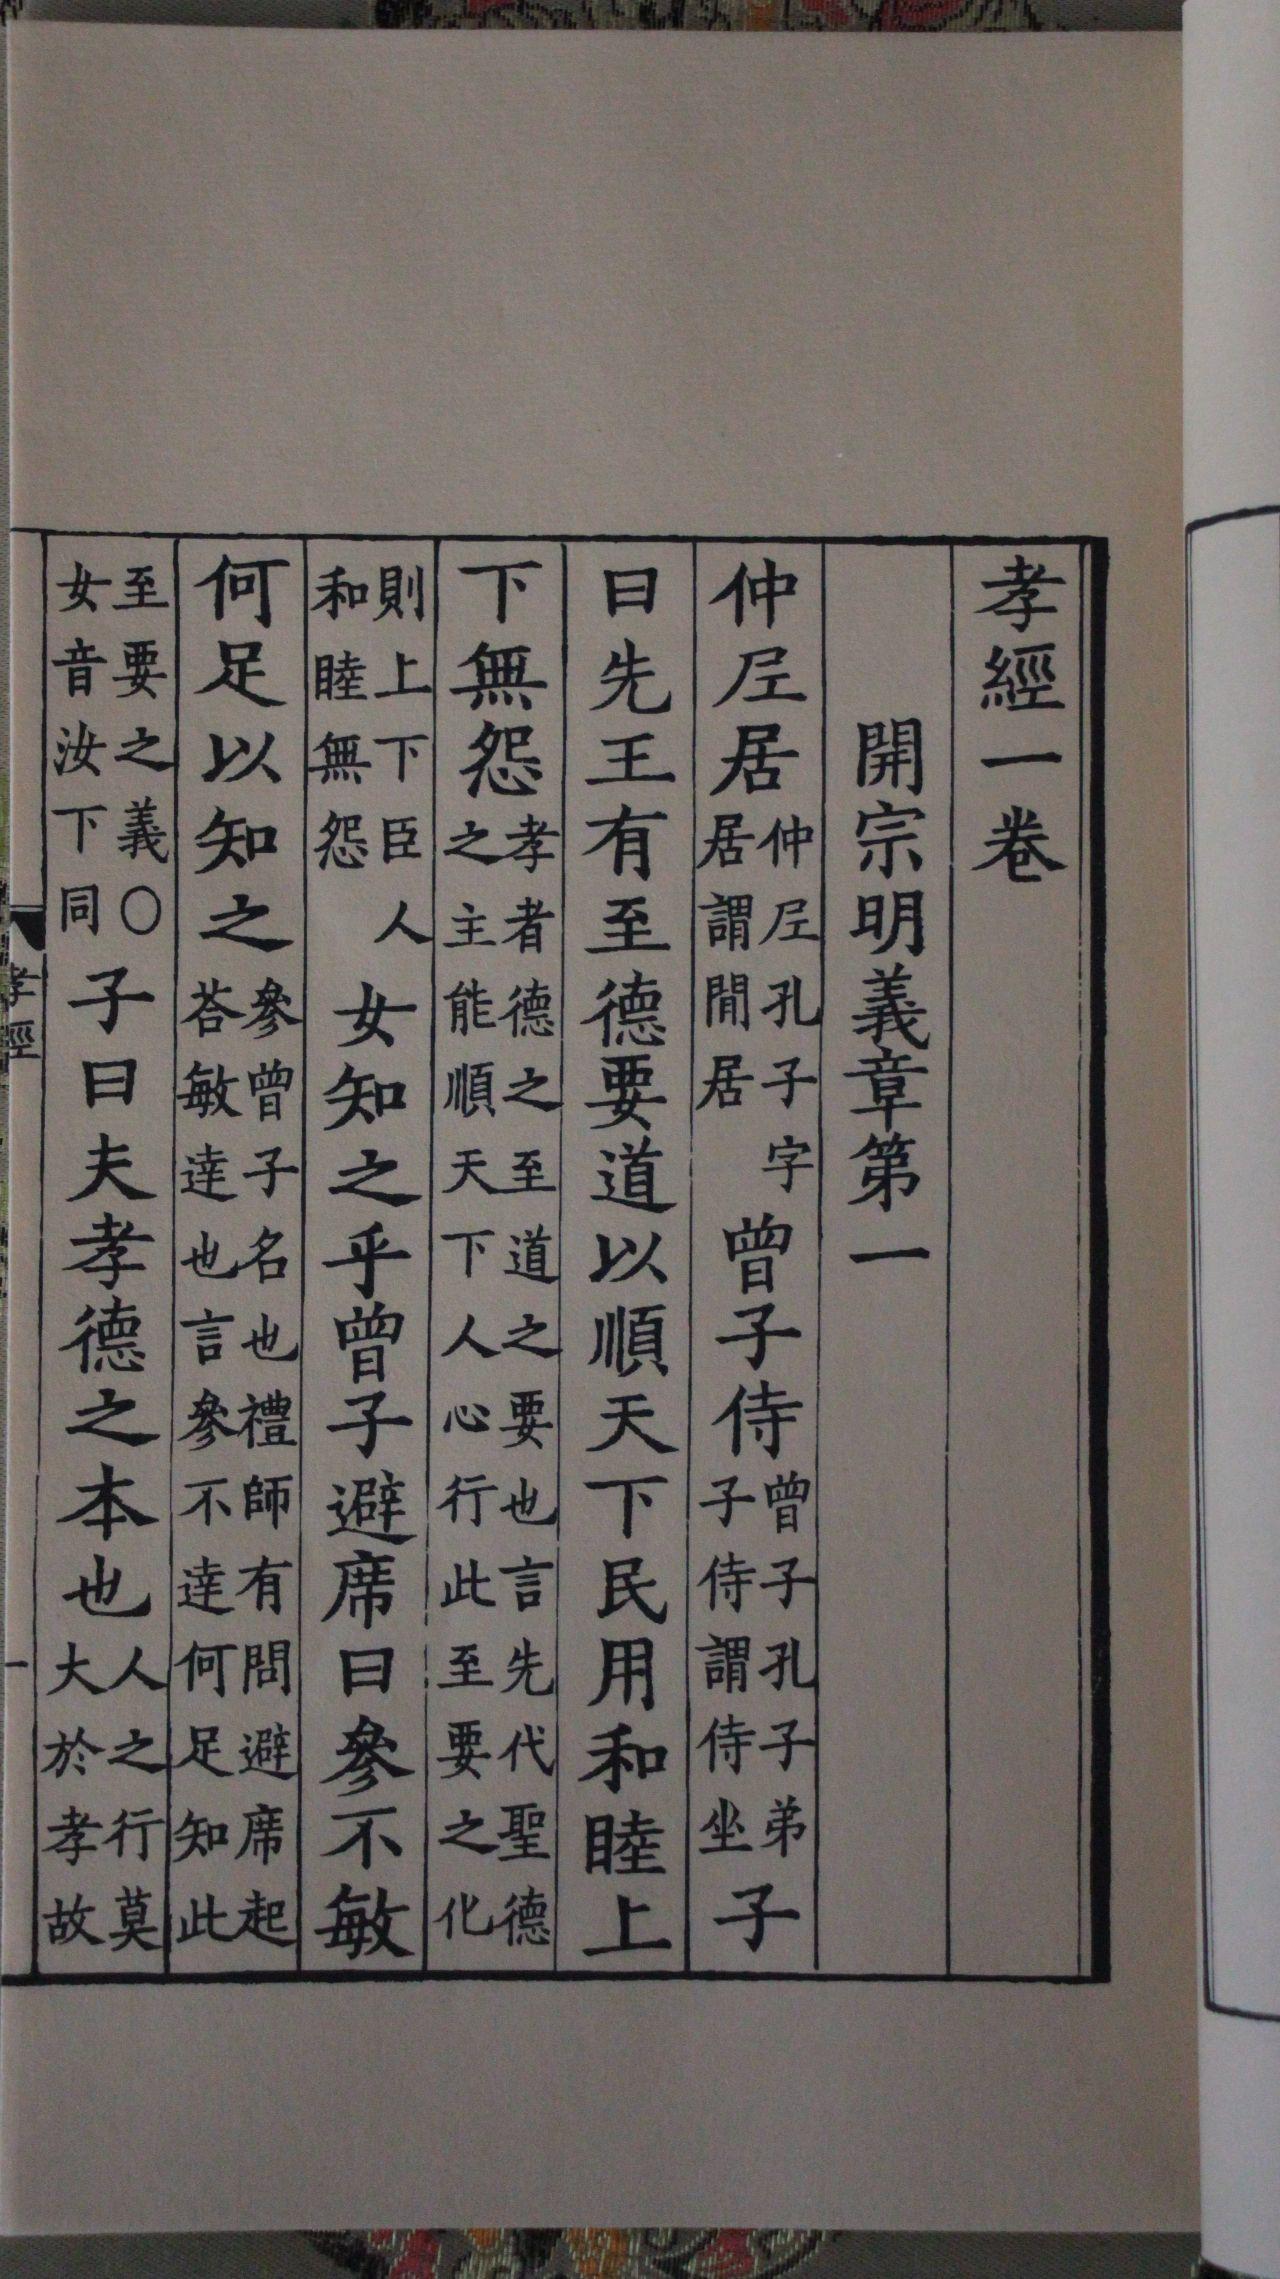 孝經一卷
開宗明義章第一
仲𡰱居仲𡰱孔子字居謂閒居曾子侍曾子孔子弟子侍謂侍坐子
曰先王有至德要道以順天下民用和睦上
下無怨孝者德之至道之要也言先代聖德之主能順天下人心行此至要之化
則上下臣人和睦無怨女知之乎曾子避席曰參不敏
何足以知之參曾子名也禮師有問避席起荅敏達也言參不達何足知此
至要之義〇女音汝下同子曰夫孝德之本也人之行莫大於孝故
孝經
一